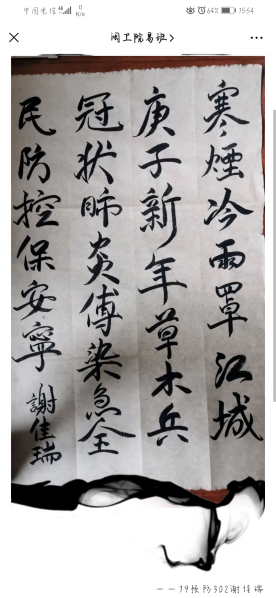 中国电信 64% 15:54
闽卫院易班
寒煙冷雨罩江城
庚子新年草木兵
冠状肺炎傳染急全
民防控保安寧
謝佳瑞
——19核防302谢佳瑞